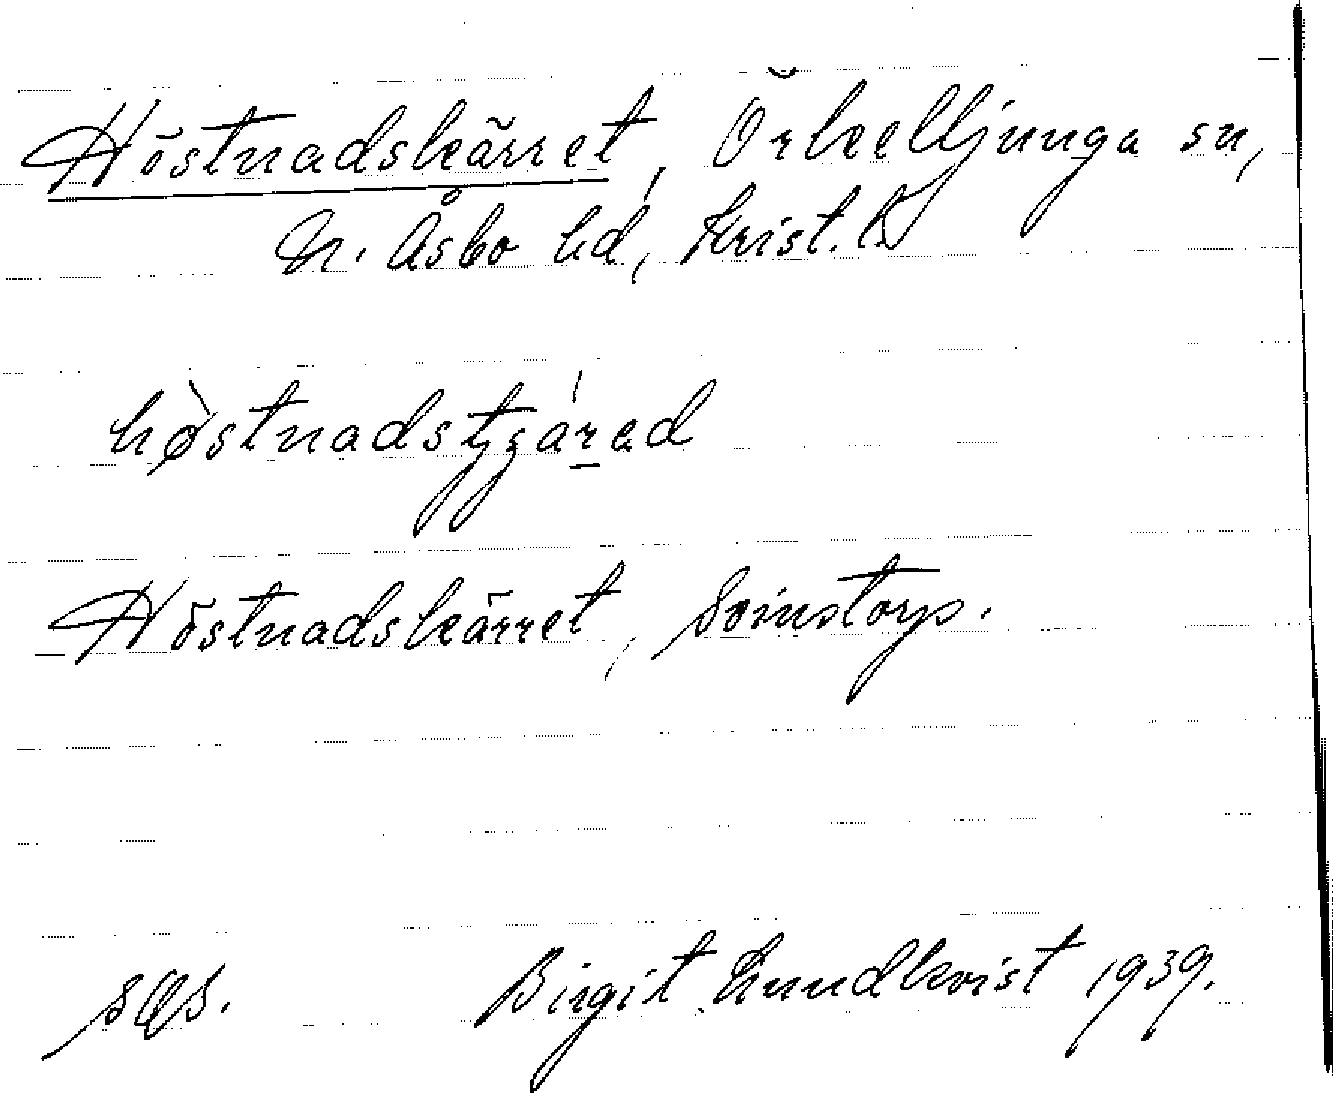 Höstnadskärret, Örkelljunga sn,
N. Åsbo hd, Krist. l.
Höstnadskärret, Svinstorps.
Birgit Lundkvist 1939.